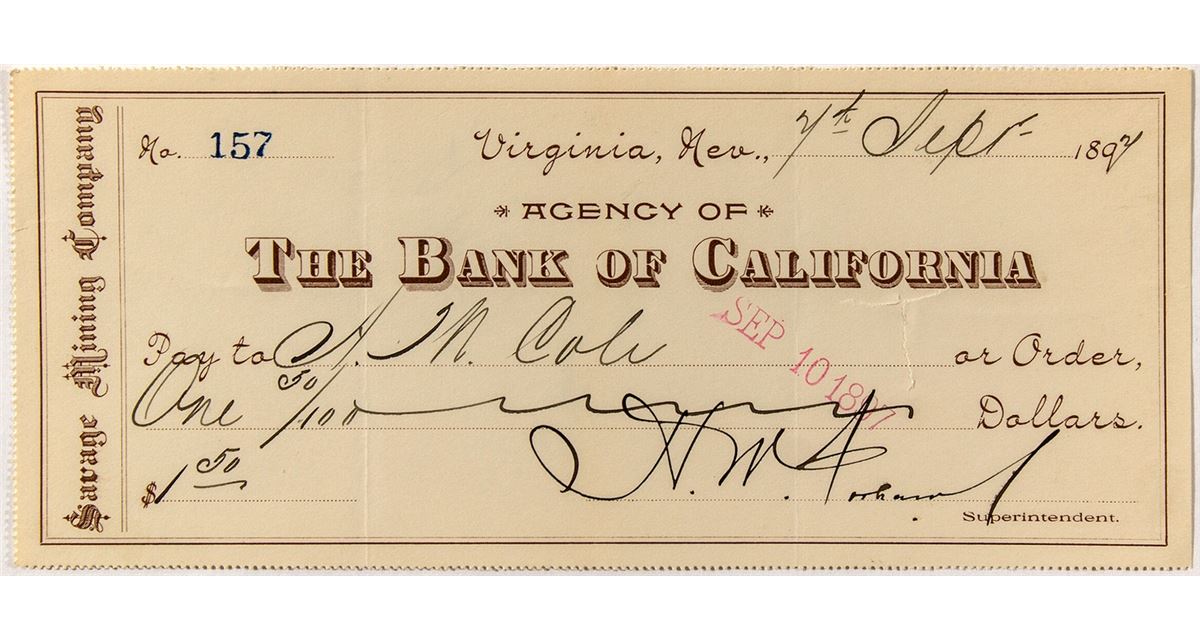 Savage Mining Company
No. 157 Virginia, Nev., 7th Sept 1897
AGENCY OF
THE BANK OF CALIFORNIA
Pay to A. M. Cole or Order,
SEP 10 1897
One 50/100 Dollars.
$1 50
Superintendent.